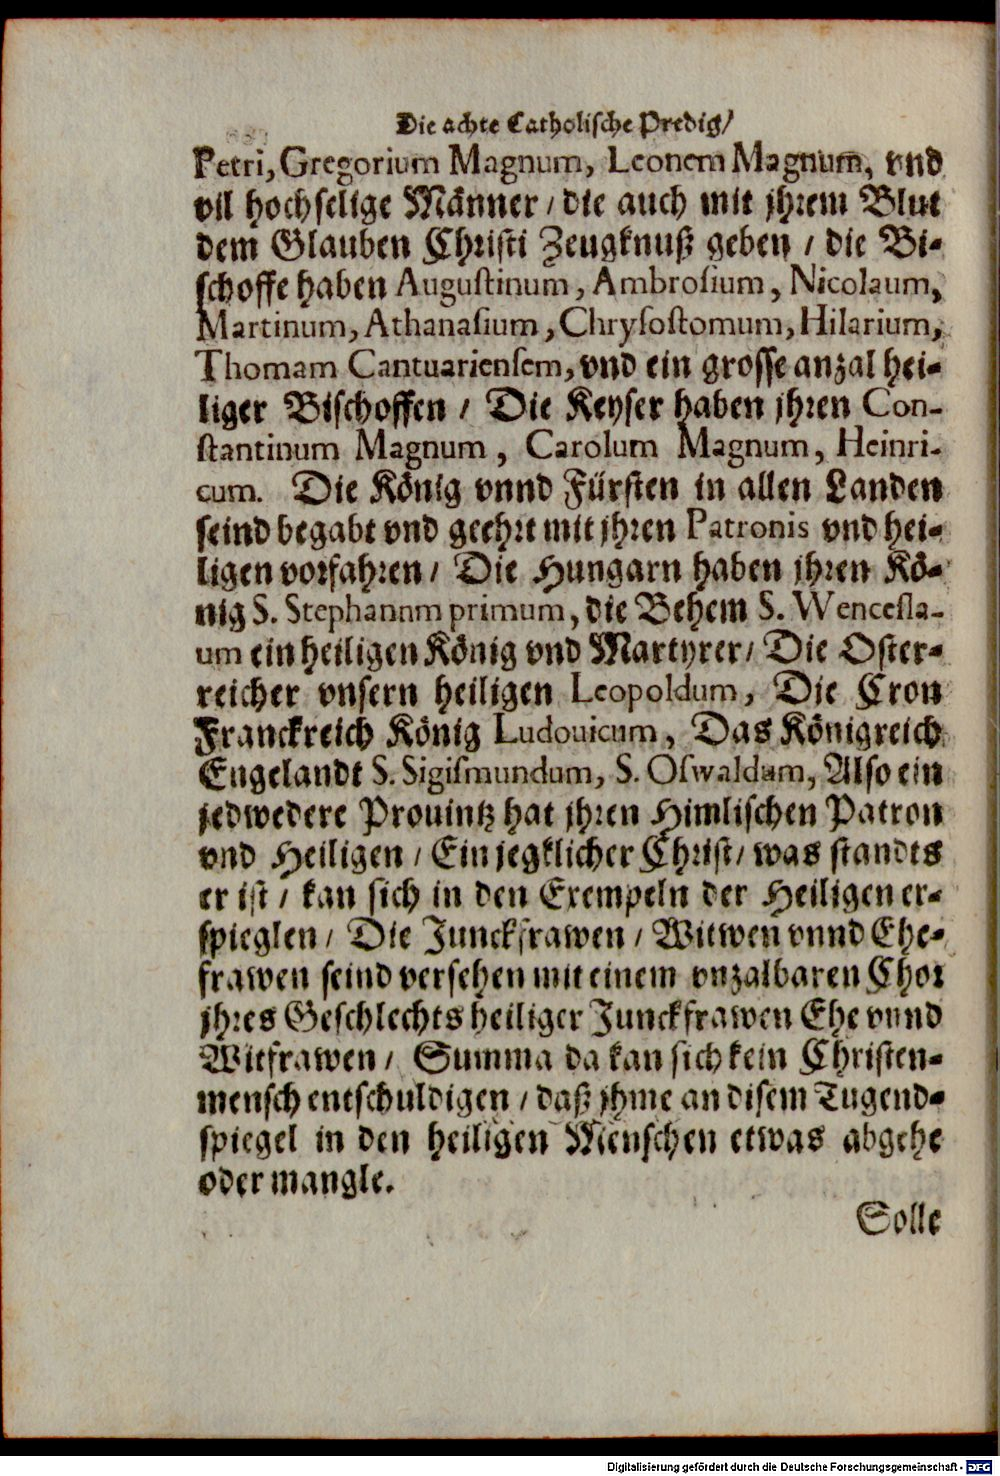 Die achte Catholische Predig/
Petri, Gregorium Magnum, Leonem Magnum, vnd
vil hochselige Männer / die auch mit jhrem Blut
dem Glauben Christi Zeugknuß geben / die Bi-
schoffe haben Augustinum, Ambrosium, Nicolaum,
Martinum, Athanasium, Chrysostomum, Hilarium,
Thomam Cantuariensem, vnd ein grosse anzal hei-
liger Bischoffen / Die Keyser haben jhren Con-
stantinum Magnum, Carolum Magnum, Heinri-
cum. Die König vnnd Fürsten in allen Landen
seind begabt vnd geehrt mit jhren Patronis vnd hei-
ligen vorfahren / Die Hungarn haben jhren Kö-
nig S. Stephannm primum, die Behem S. Wencesla-
um ein heiligen König vnd Martyrer / Die Oster-
reicher vnsern heiligen Leopoldum, Die Cron
Franckreich König Ludouicum, Das Königreich
Engelandt S. Sigismundum, S. Oswaldum, Also ein
jedwedere Prouintz hat jhren Himlischen Patron
vnd Heiligen / Ein jegklicher Christ / was standts
er ist / kan sich in den Exempeln der Heiligen er-
spieglen / Die Junckfrawen / Witwen vnnd Ehe-
frawen seind versehen mit einem vnzalbaren Chor
jhres Geschlechts heiliger Junckfrawen Ehe vnnd
Witfrawen / Summa da kan sich kein Christen-
mensch entschuldigen / daß jhme an disem Tugend-
spiegel in den heiligen Menschen etwas abgehe
oder mangle.
Solle
Digitalisierung gefördert durch die Deutsche Forschungsgemeinschaft - DFG